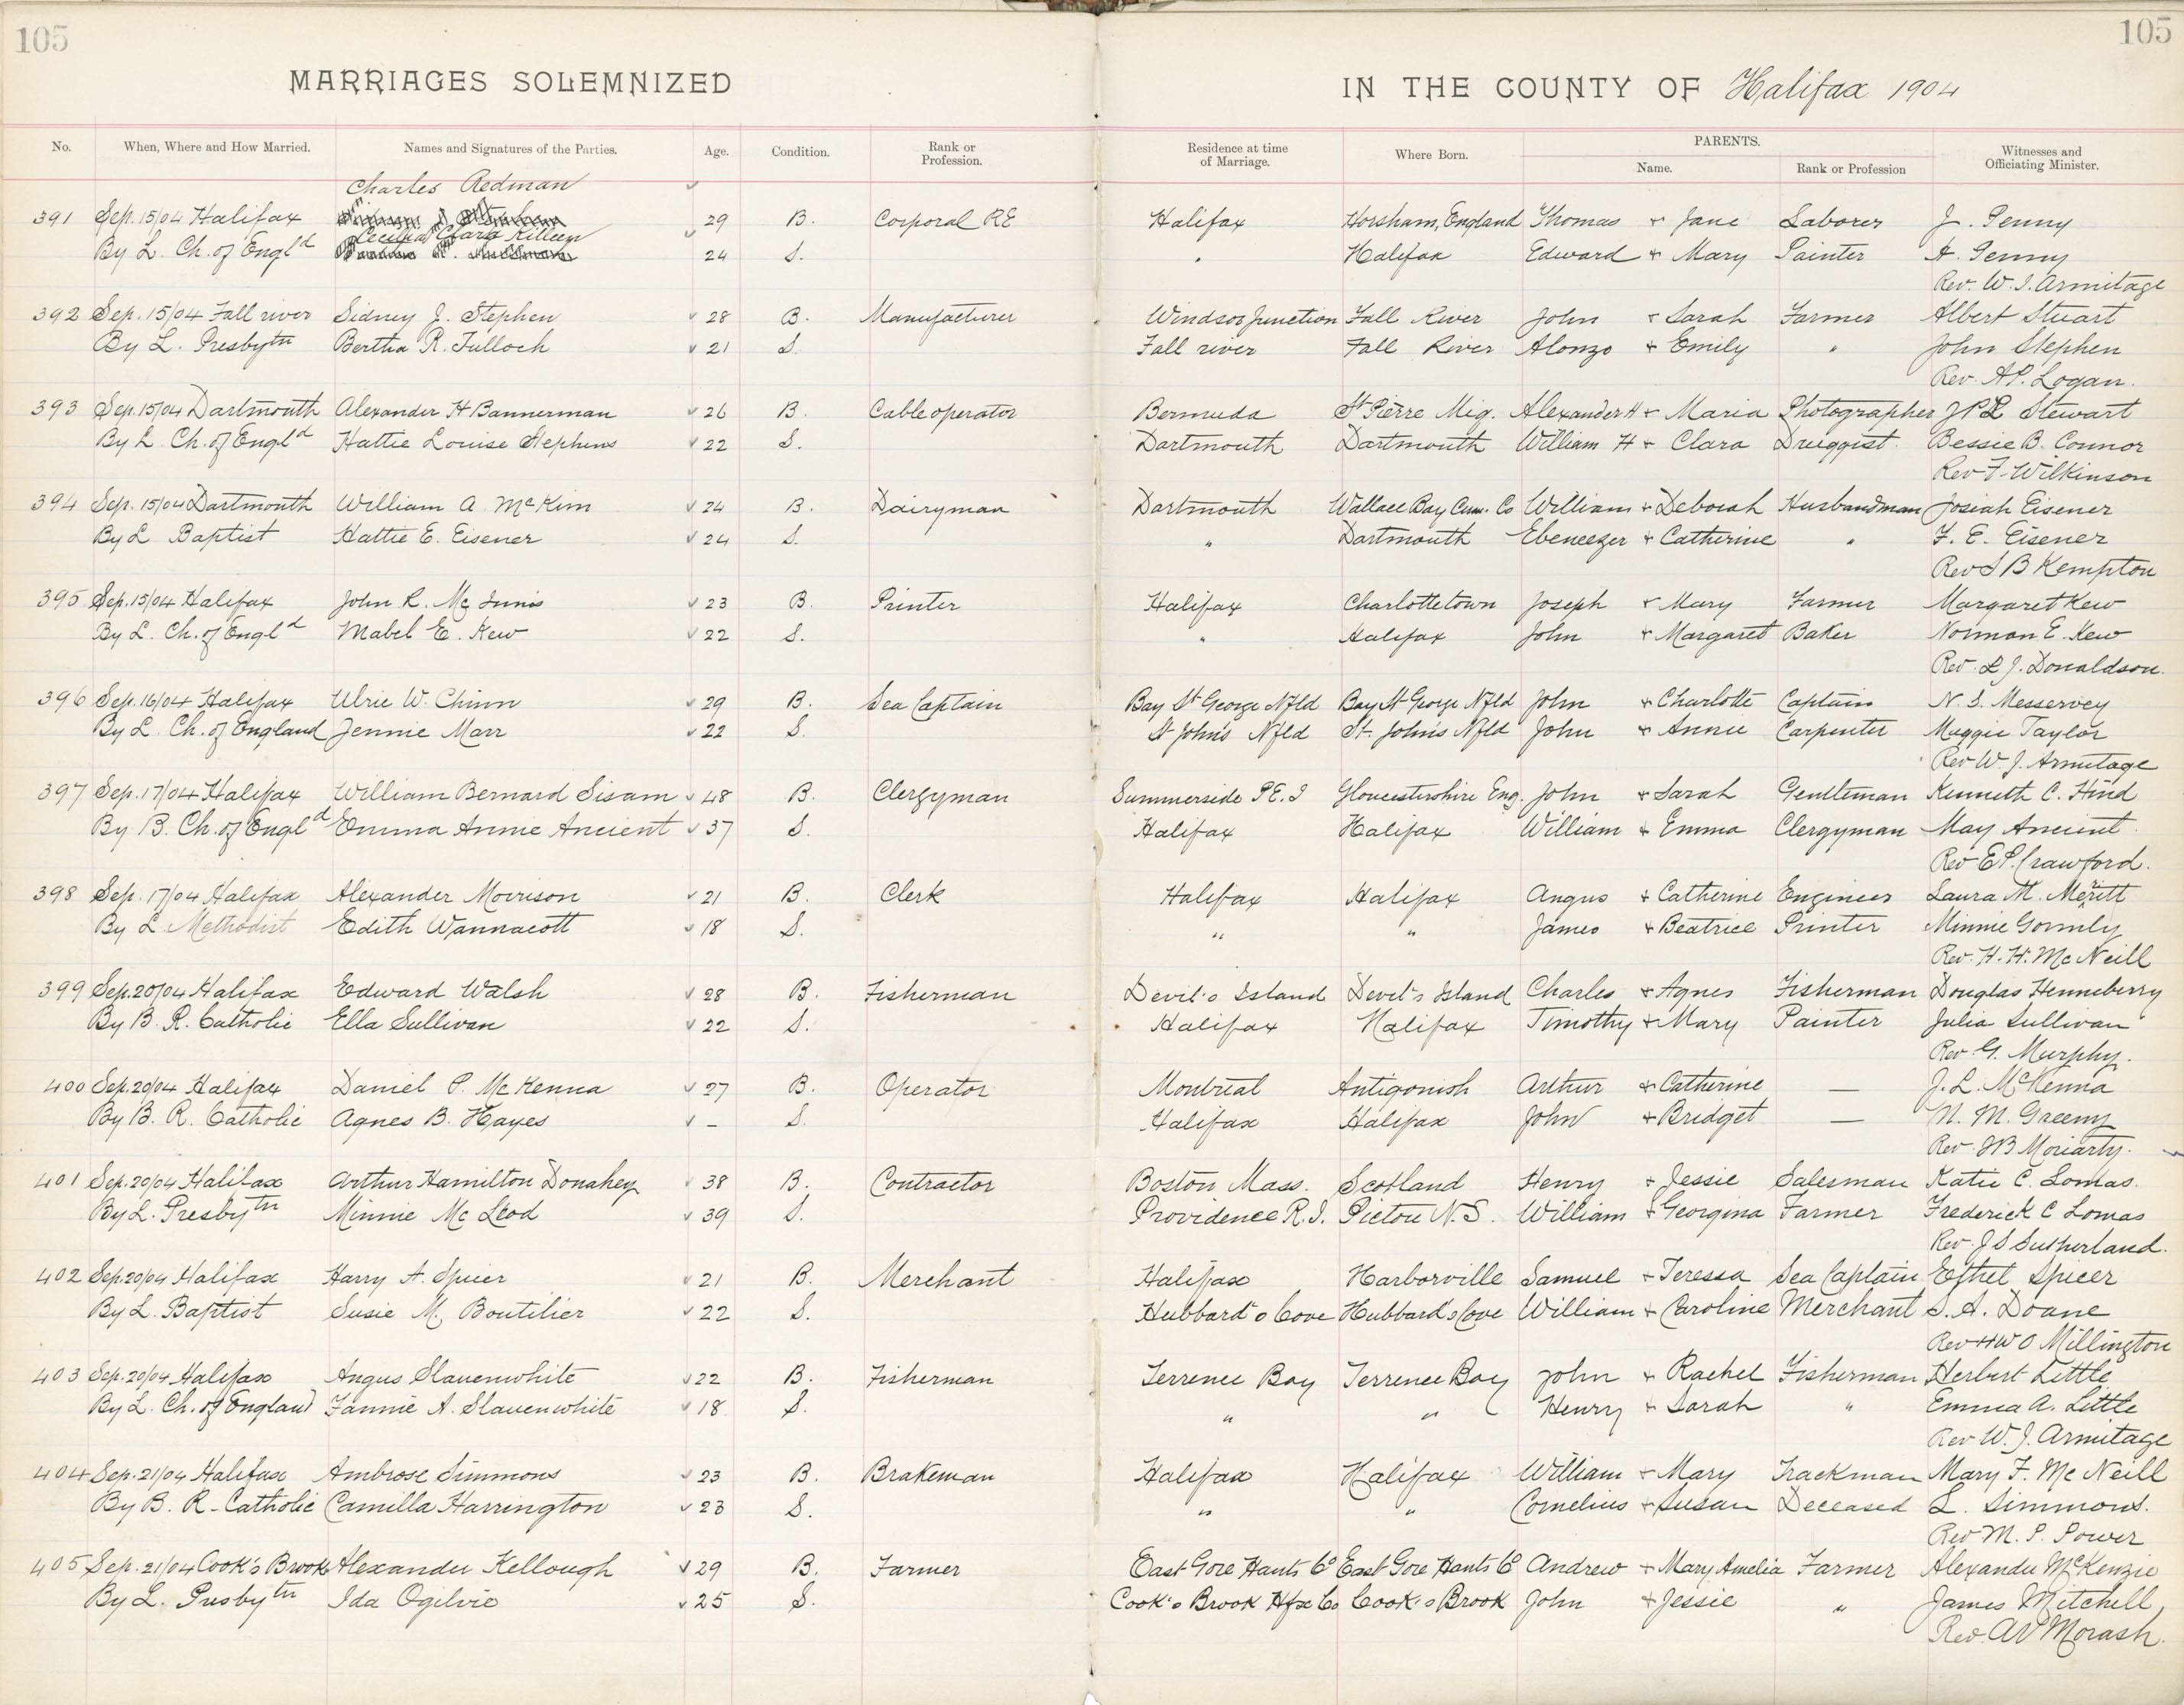 105 105
MARRIAGES SOLEMNIZED IN THE COUNTY OF Halifax 1904
No. When, Where and How Married. Names and Signatures of the Parties. Age. Condition. Rank or Profession. Residence at time of Marriage. Where Born. PARENTS. Name. Rank or Profession Witnesses and Officiating Minister.
Charles Redman
391 Sep. 15/04 Halifax 29 B. Corporal RE Halifax Horsham, England Thomas + Jane Laborer J. Penny
Cecilia Clara Killeen
By L. Ch. of Engld 24 S. " Halifax Edward + Mary Painter A. Penny
Rev. W. J. Armitage
392 Sep. 15/04 Fall river Sidney J. Stephen 28 B. Manufacturer Windsor Junction Fall River John + Sarah Farmer Albert Stuart
By L. Presbytn Bertha R. Tulloch 21 S. Fall river Fall River Alonzo + Emily " John Stephen
Rev. A.P. Logan.
393 Sep. 15/04 Dartmouth Alexander H Bannerman 26 B. Cable operator Bermuda St Pierre Miq. Alexander H + Maria Photographer J P L Stewart
By L Ch. of Engld Hattie Louise Stephens 22 S. Dartmouth Dartmouth William H + Clara Druggist. Bessie B. Connor
Rev F. Wilkinson
394 Sep. 15/04 Dartmouth William A. McKim 24 B. Dairyman Dartmouth Wallace Bay Cum. Co William + Deborah Husbandman Josiah Eisener
By L Baptist Hattie E. Eisener 24 S. " Dartmouth Ebeneezer + Catherine " F. E. Eisener
Rev S B Kempton
395 Sep. 15/04 Halifax John R. McInnis 23 B. Printer Halifax Charlottetown Joseph + Mary Farmer Margaret Kew
By L. Ch. of Engld Mabel E. Kew 22 S. " Halifax John + Margaret Baker Norman E. Kew
Rev. L. J. Donaldson.
396 Sep. 16/04 Halifax Ulric W. Chinn 29 B. Sea Captain Bay St George Nfld Bay St George Nfld John + Charlotte Captain N. S. Messervey
By L. Ch. of England Jennie Marr 22 S. St John's Nfld St. John's Nfld John + Annie Carpenter Maggie Taylor
Rev W. J. Armitage
397 Sep. 17/04 Halifax William Bernard Sisam 48 B. Clergyman Summerside P.E.I Gloucestershire Eng. John + Sarah Gentleman Kenneth C. Hind
By B. Ch. of Engld Emma Annie Ancient 37 S. Halifax Halifax William + Emma Clergyman May Ancient
Rev E P. Crawford.
398 Sep. 17/04 Halifax Alexander Morrison 21 B. Clerk Halifax Halifax Angus + Catherine Engineer Laura M. Meritt
By L. Methodist Edith Wannacott 18 S. " " James + Beatrice Printer Minnie Gormly
Rev. H. H. McNeill
399 Sep. 20/04 Halifax Edward Walsh 28 B. Fisherman Devil's Island Devil's Island Charles + Agnes Fisherman Douglas Henneberry
By B. R. Catholic Ella Sullivan 22 S. Halifax Halifax Timothy + Mary Painter Julia Sullivan
Rev. G. Murphy.
400 Sep. 20/04 Halifax Daniel P. McKenna 27 B. Operator Montreal Antigonish Arthur + Catherine — J. L. McKenna
By B. R. Catholic Agnes B. Hayes – S. Halifax Halifax John + Bridget — N. M. Greeny
Rev. J B Moriarty.
401 Sep. 20/04 Halifax Arthur Hamilton Donahey 38 B. Contractor Boston Mass. Scotland Henry + Jessie Salesman Katie C. Lomas.
By L. Presbytn Minnie McLeod 39 S. Providence R.I. Pictou N.S. William + Georgina Farmer Frederick C Lomas
Rev. J S Sutherland.
402 Sep. 20/04 Halifax Harry A. Spicer 21 B. Merchant Halifax Harborville Samuel + Teressa Sea Captain Ethel Spicer
By L. Baptist Susie M. Boutilier 22 S. Hubbard's Cove Hubbard's Cove William + Caroline Merchant S. A. Doane
Rev H W O Millington
403 Sep. 20/04 Halifax Angus Slauenwhite 22 B. Fisherman Terrence Bay Terrence Bay John + Rachel Fisherman Herbert Little
By L. Ch. of England Fannie A. Slauenwhite 18 S. " " Henry + Sarah " Emma A. Little
Rev W. J. Armitage
404 Sep. 21/04 Halifax Ambrose Simmons 23 B. Brakeman Halifax Halifax William + Mary Trackman Mary F. McNeill
By B. R. Catholic Camilla Harrington 23 S. " " Cornelius + Susan Deceased L. Simmons.
Rev M. P. Power
405 Sep. 21/04 Cook's Brook Alexander Kellough 29 B. Farmer East Gore Hants Co East Gore Hants Co Andrew + Mary Amelia Farmer Alexander McKenzie
By L. Presbytn Ida Ogilvie 25 S. Cook's Brook Hfx Co Cook's Brook John + Jessie " James Mitchell
Rev. A V Morash.